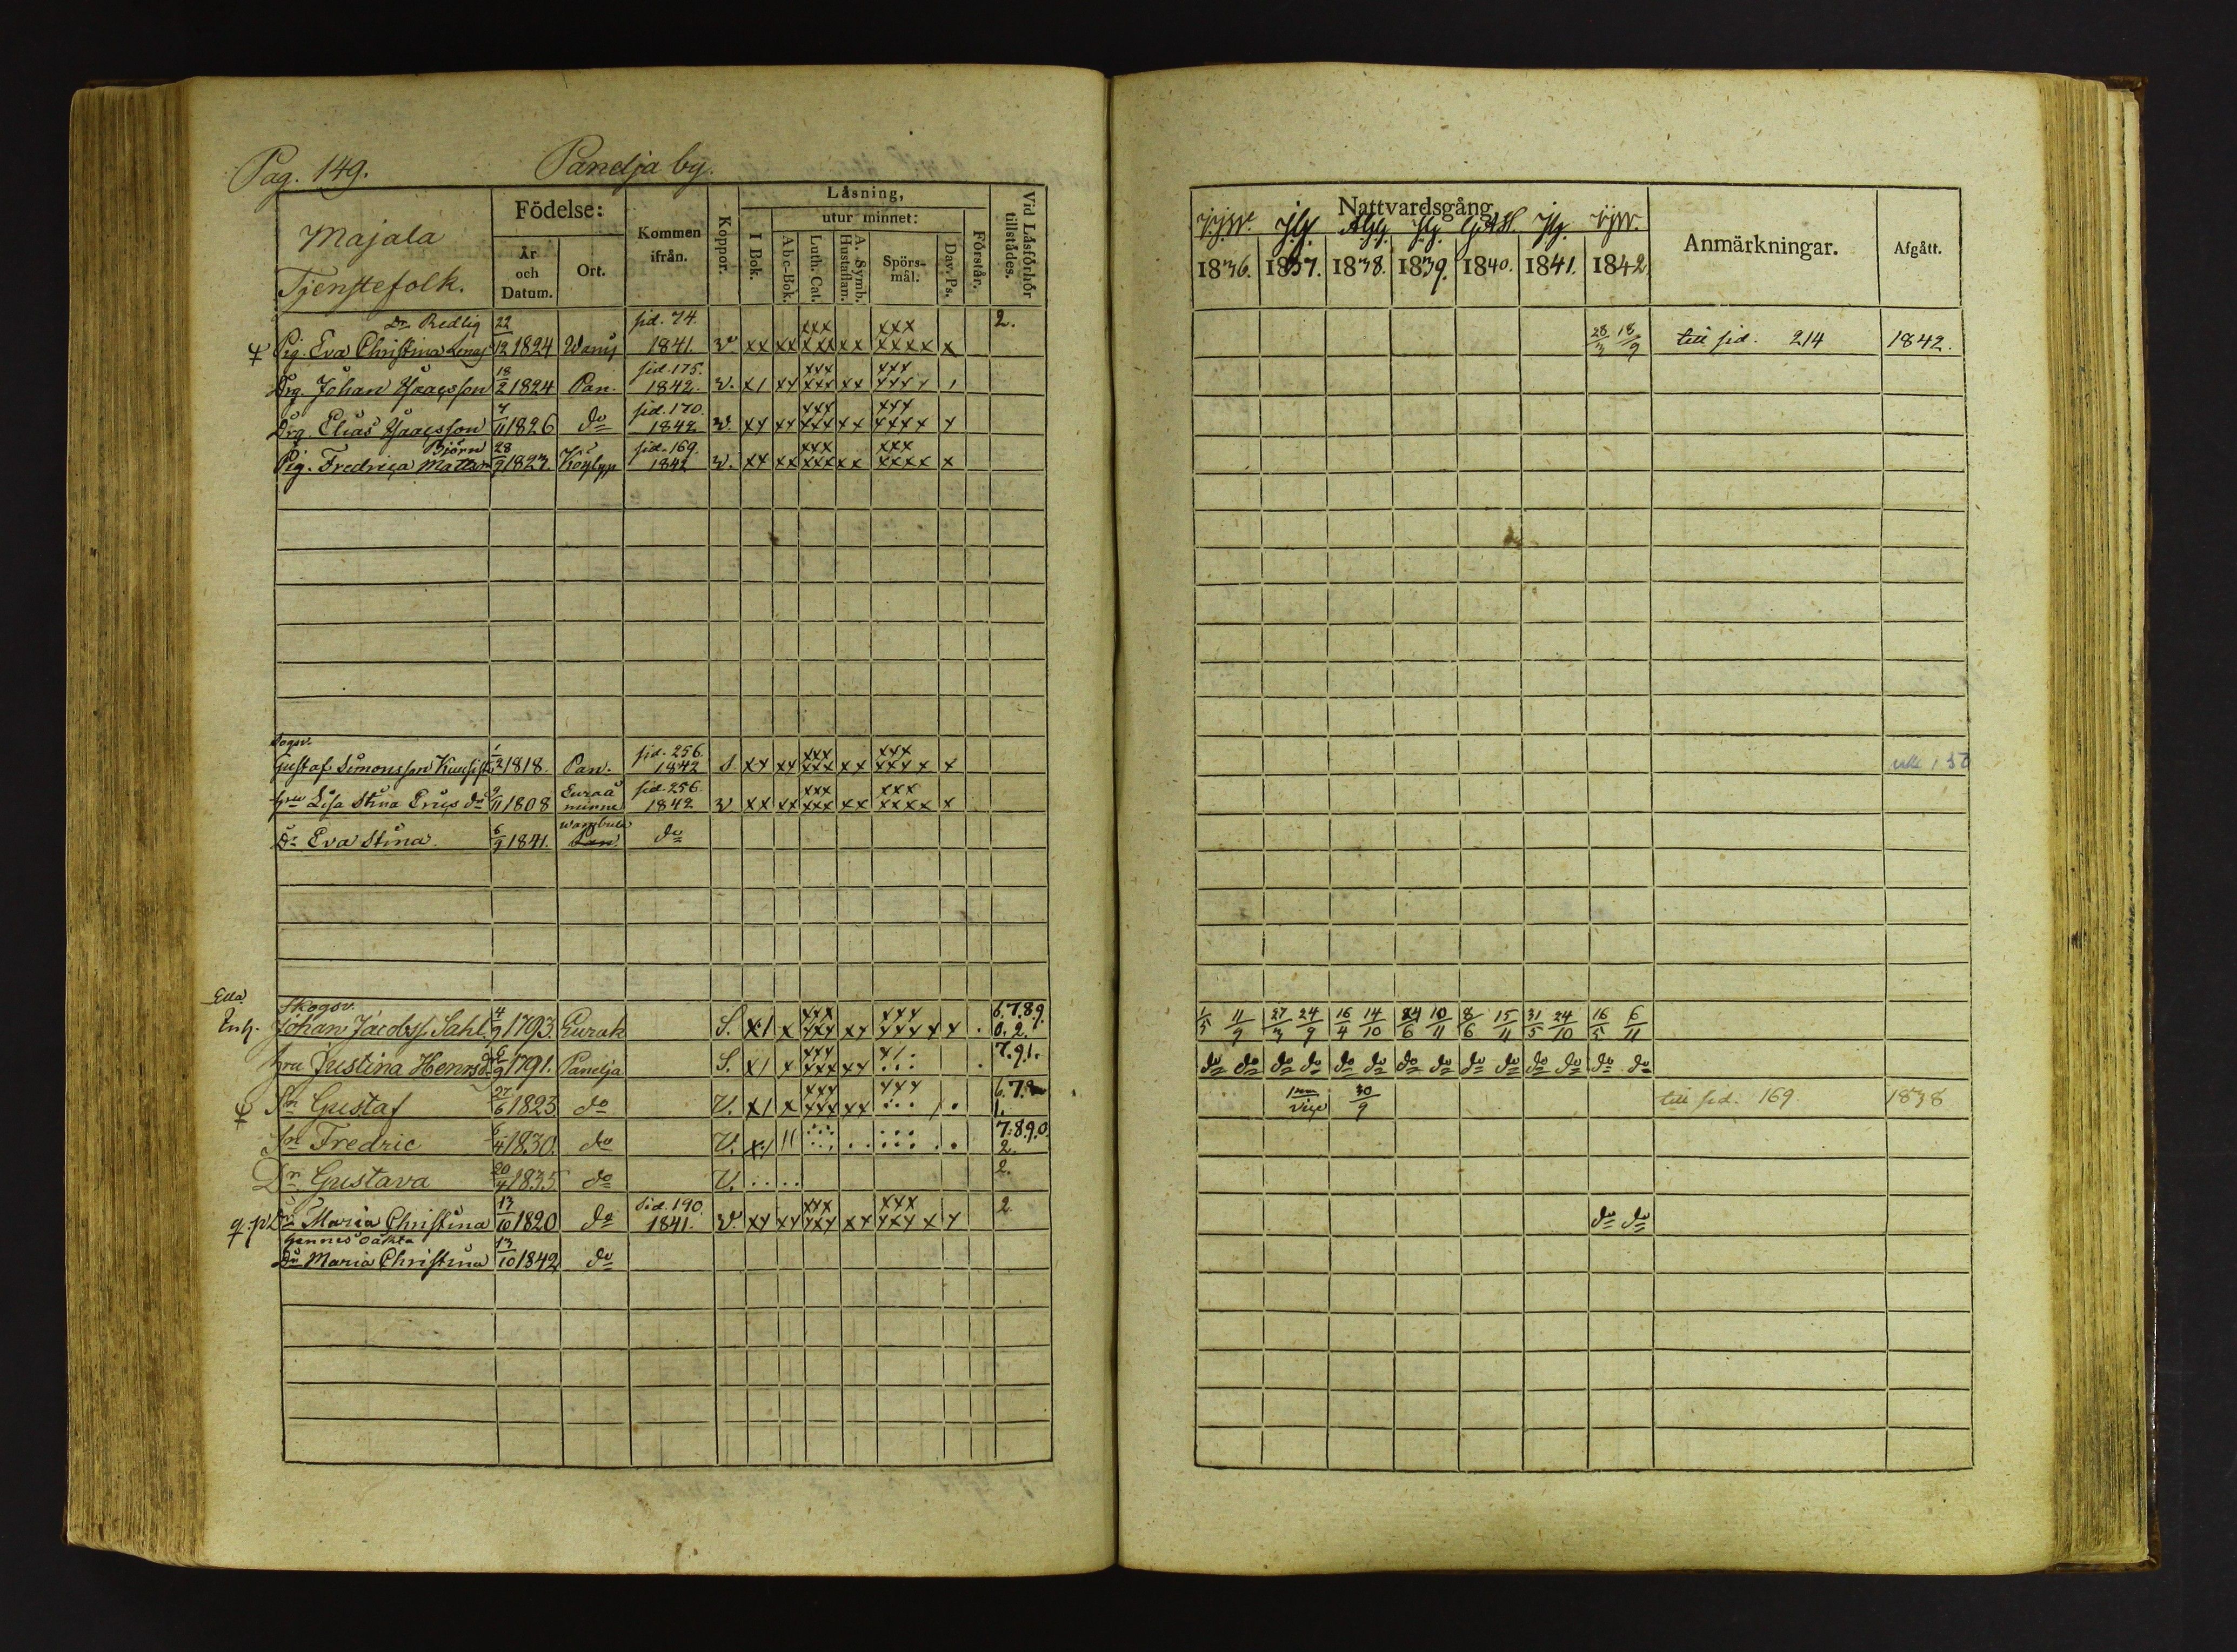 Pag. 149. Panelja by.
Majala
Tjenstefolk.
Födelse:
År och Datum.
Ort.
Kommen ifrån.
Koppor.
Läsning,
I Bok.
utur minnet:
Abc-Bok.
Luth. Cat.
A. Symb. Hustaflan.
Spörsmål.
Dav. Ps.
Förstår.
Vid Läsförhör tillstädes.
Nattvardsgång
1836. 1837. 1838. 1839. 1840. 1841. 1842
Anmärkningar.
Afgått.
Dr Redlig 22 sid. 74. xxx xxx 2.
Pig. Eva Christina 12 1824 1841. v. xx xx xxx xx xxxx x 28/3 18/9 till sid. 214 1842.
18 sid. 175. xxx xxx
Drg. Johan Isaacsson 2 1824 Pan. 1842. v. x1 xx xxx xx
7 sid. 170. xxx xxx
Drg. Elias Isaacsson 11 1826 do 1842 v. xx xx xxx xx xxxx x
Björn 28 sid. 169. xxx xxx
Pig. Fredrica 9 1823 1842 v. xx xx xxx xx xxxx x
1 sid. 256. xxx xxx
Gustaf Simonsson 2 1818. Pan. 1842 S. xx xx xxx xx xxxx x
9 Euraå sid. 256. xxx xxx
hru Lisa Stina Erics dr 11 1808 minne 1842 v. xx xx xxx xx xxxx x
6 wambula
Dr Eva Stina. 9 1841. Pan. do
Skogsv. 4 xxx xxx 6.7.8.9.
Enh. Johan Jacobss. Sahl. 9 1793. Eurak S. x1 x xxx xx xxxxx x . 0. 2. 1/5 11/9 27/3 24/9 16/4 14/10 24/6 10/11 8/6 15/11 31/5 24/10 16/5 6/11
hru Justina Henrsdr 6/9 1791. Panelja S. x1 x xxx xx . 7.9.1. do do do do do do do do do do do do do do
Sn Gustaf 27/6 1823 do V. x1 x xxx xx 1. 30/9 till sid. 169. 1838
Sn Fredric 6/4 1830. do V. 7.8.9.0. 2.
Dr Gustava 20/4 1835 do V. .... 2.
17 Sid. 190. xxx xxx 2.
Dr Maria Christina 10 1820 do 1841. v. xx xx xxx xx xxxx x do do
hennes oäkta 13
Dr Maria Christina 10 1842 do